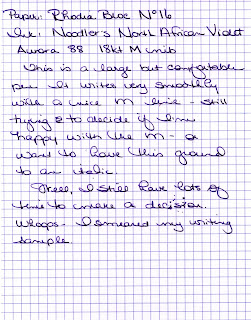 Paper: Rhodia Bloc Nº16
Ink: Noodler's North African Violet
Aurora 88 18kt M nib
This is a large but comfortable
pen. It writes very smoothly
with a nice M line - still
trying to decide if I'm
happy with the M - or
want to have this ground
to an italic.
Well, I still have lots of
time to make a decision.
Whoops - I smeared my writing
sample.